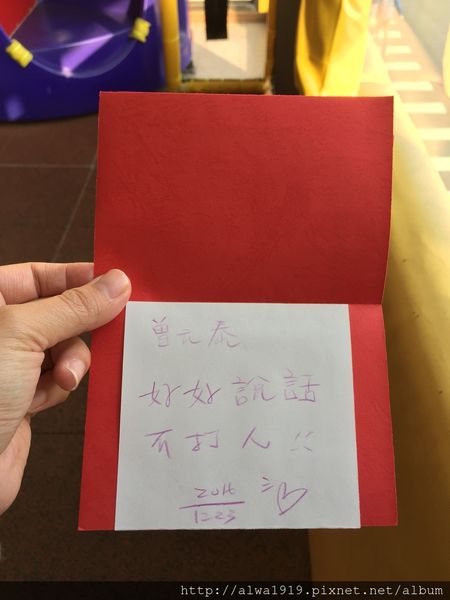 曾元泰
好好說話
不打人!!
2016
1223
http://alwa1919.pixnet.net/album